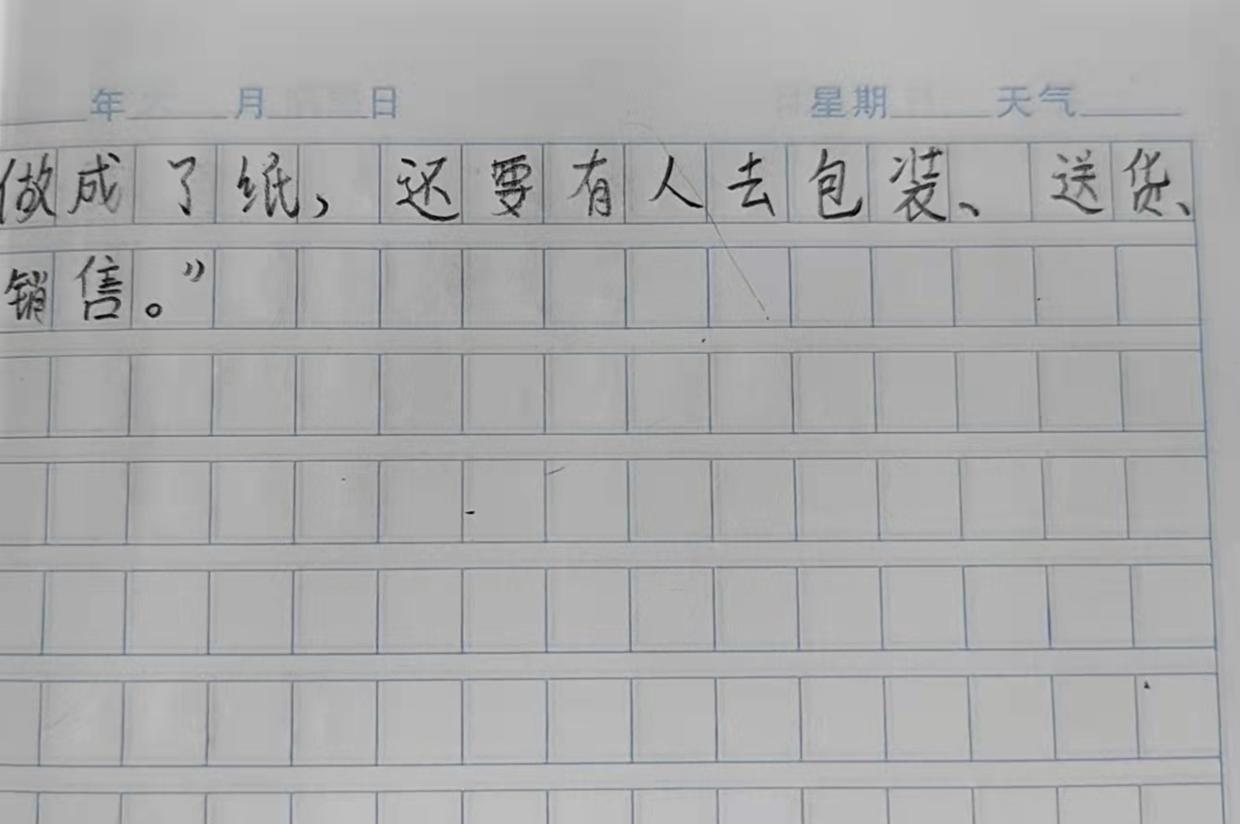 ____年____月____日 星期____天气____
做成了纸，还要有人去包装、送货、
销售。”